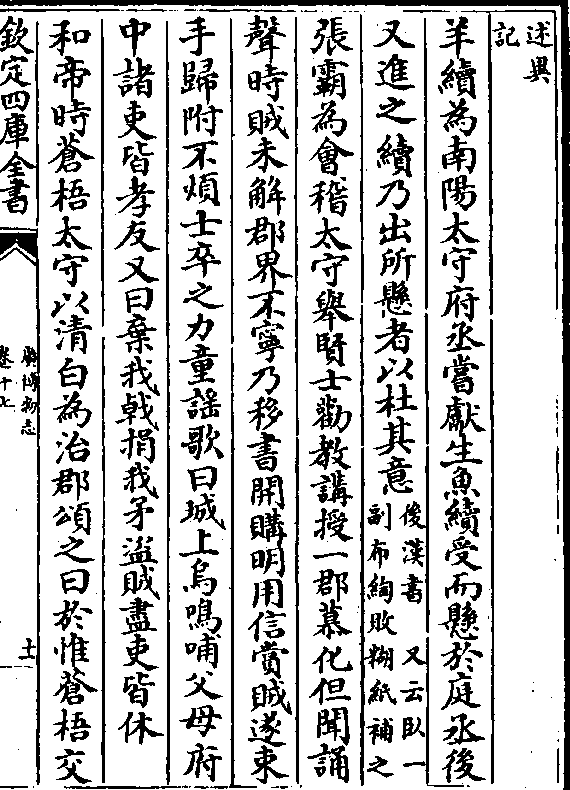 述異
記
羊續為南陽太守府丞嘗獻生魚續受而懸於庭丞後
又進之續乃出所懸者以杜其意
後漢書　又云臥一
副布綯敗糊紙補之
張霸為會稽太守舉賢士勸教講授一郡慕化但聞誦
聲時賊未解郡界不寧乃移書開購明用信賞賊遂束
手歸附不煩士卒之力童謠歌曰城上烏鳴哺父母府
中諸吏皆孝友又曰棄我戟捐我矛盜賊盡吏皆休
和帝時蒼梧太守以清白為治郡頌之曰於惟蒼梧交
欽定四庫全書
廣博物志
卷十七
十一